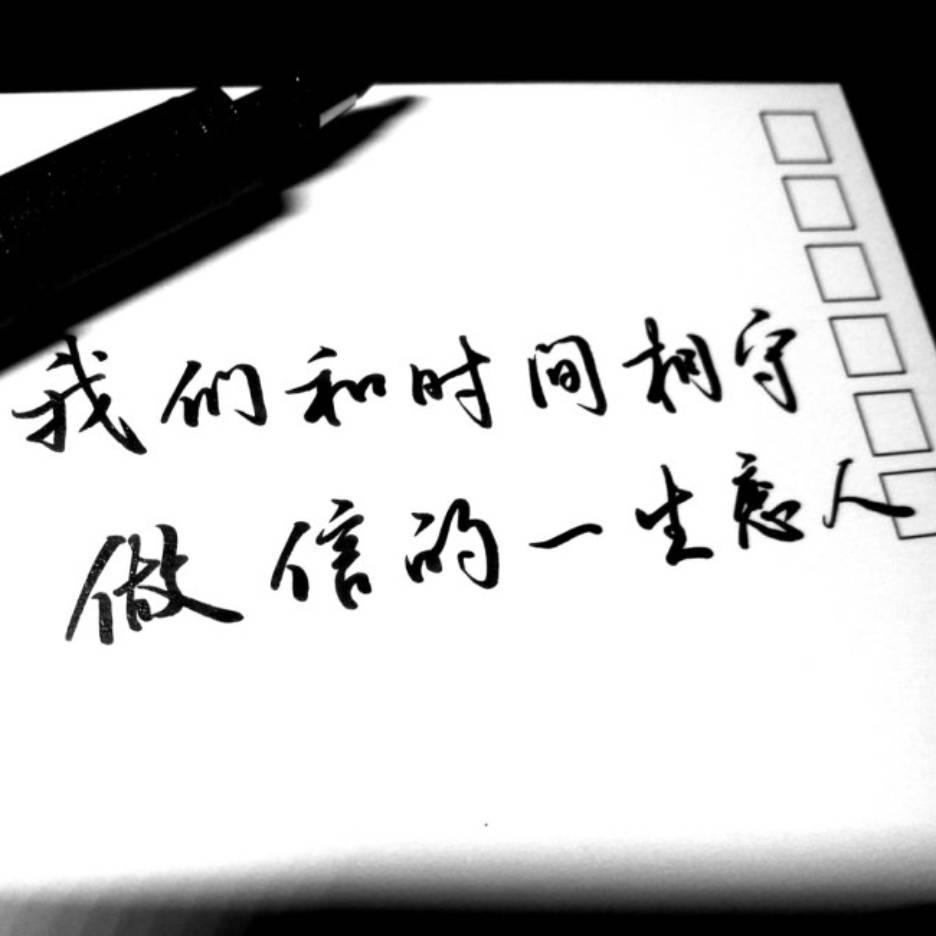 我们和时间相守
做信的一生恋人